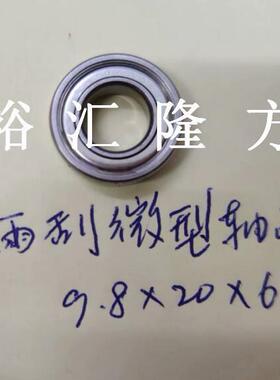 裕汇隆方
雨刮微型轴
9.8×20×6